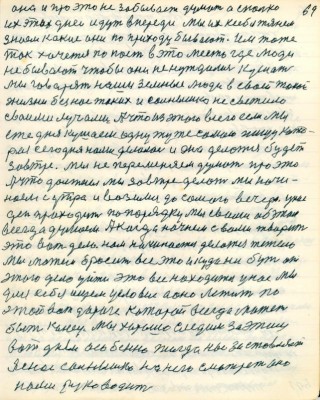 она и про это не забывает думать а сколько 69
их этих дней идут впереди мы их ке
знаем какие они по приходу бывают. Им тоже
так хочется попасть в это место где люди
не бывают чтобы они не нуждались Кушать
мы говорят наши земные люди в своей такой
жизни без нас таких и солнышко не светило
своими лучами. А что из этого всего если мы
еже дня кушаем одну туже самою пищу кото-
рая сегодня нами делалось и она делатся будет
завтра. мы не переменяем думать про это
А что должны мы завтра делать мы начи-
наем с утра и возимся до самого вечера у нас
ден проходит по порядку мы своим
всегда думаем А когда начнем с вами творить
это вот день нам начинается делатся тяжело
мы можем бросить все это и куда не будь от
этого дело уйти Это все находится у нас мы
для себя ищем условие а оно лежит по
этой вот дороге которой всегда может
быть конец. мы хорошо следим за этим
вот днем особенно когда нас заставляет
Ясное солнышко на него смотреть оно
нами руководит